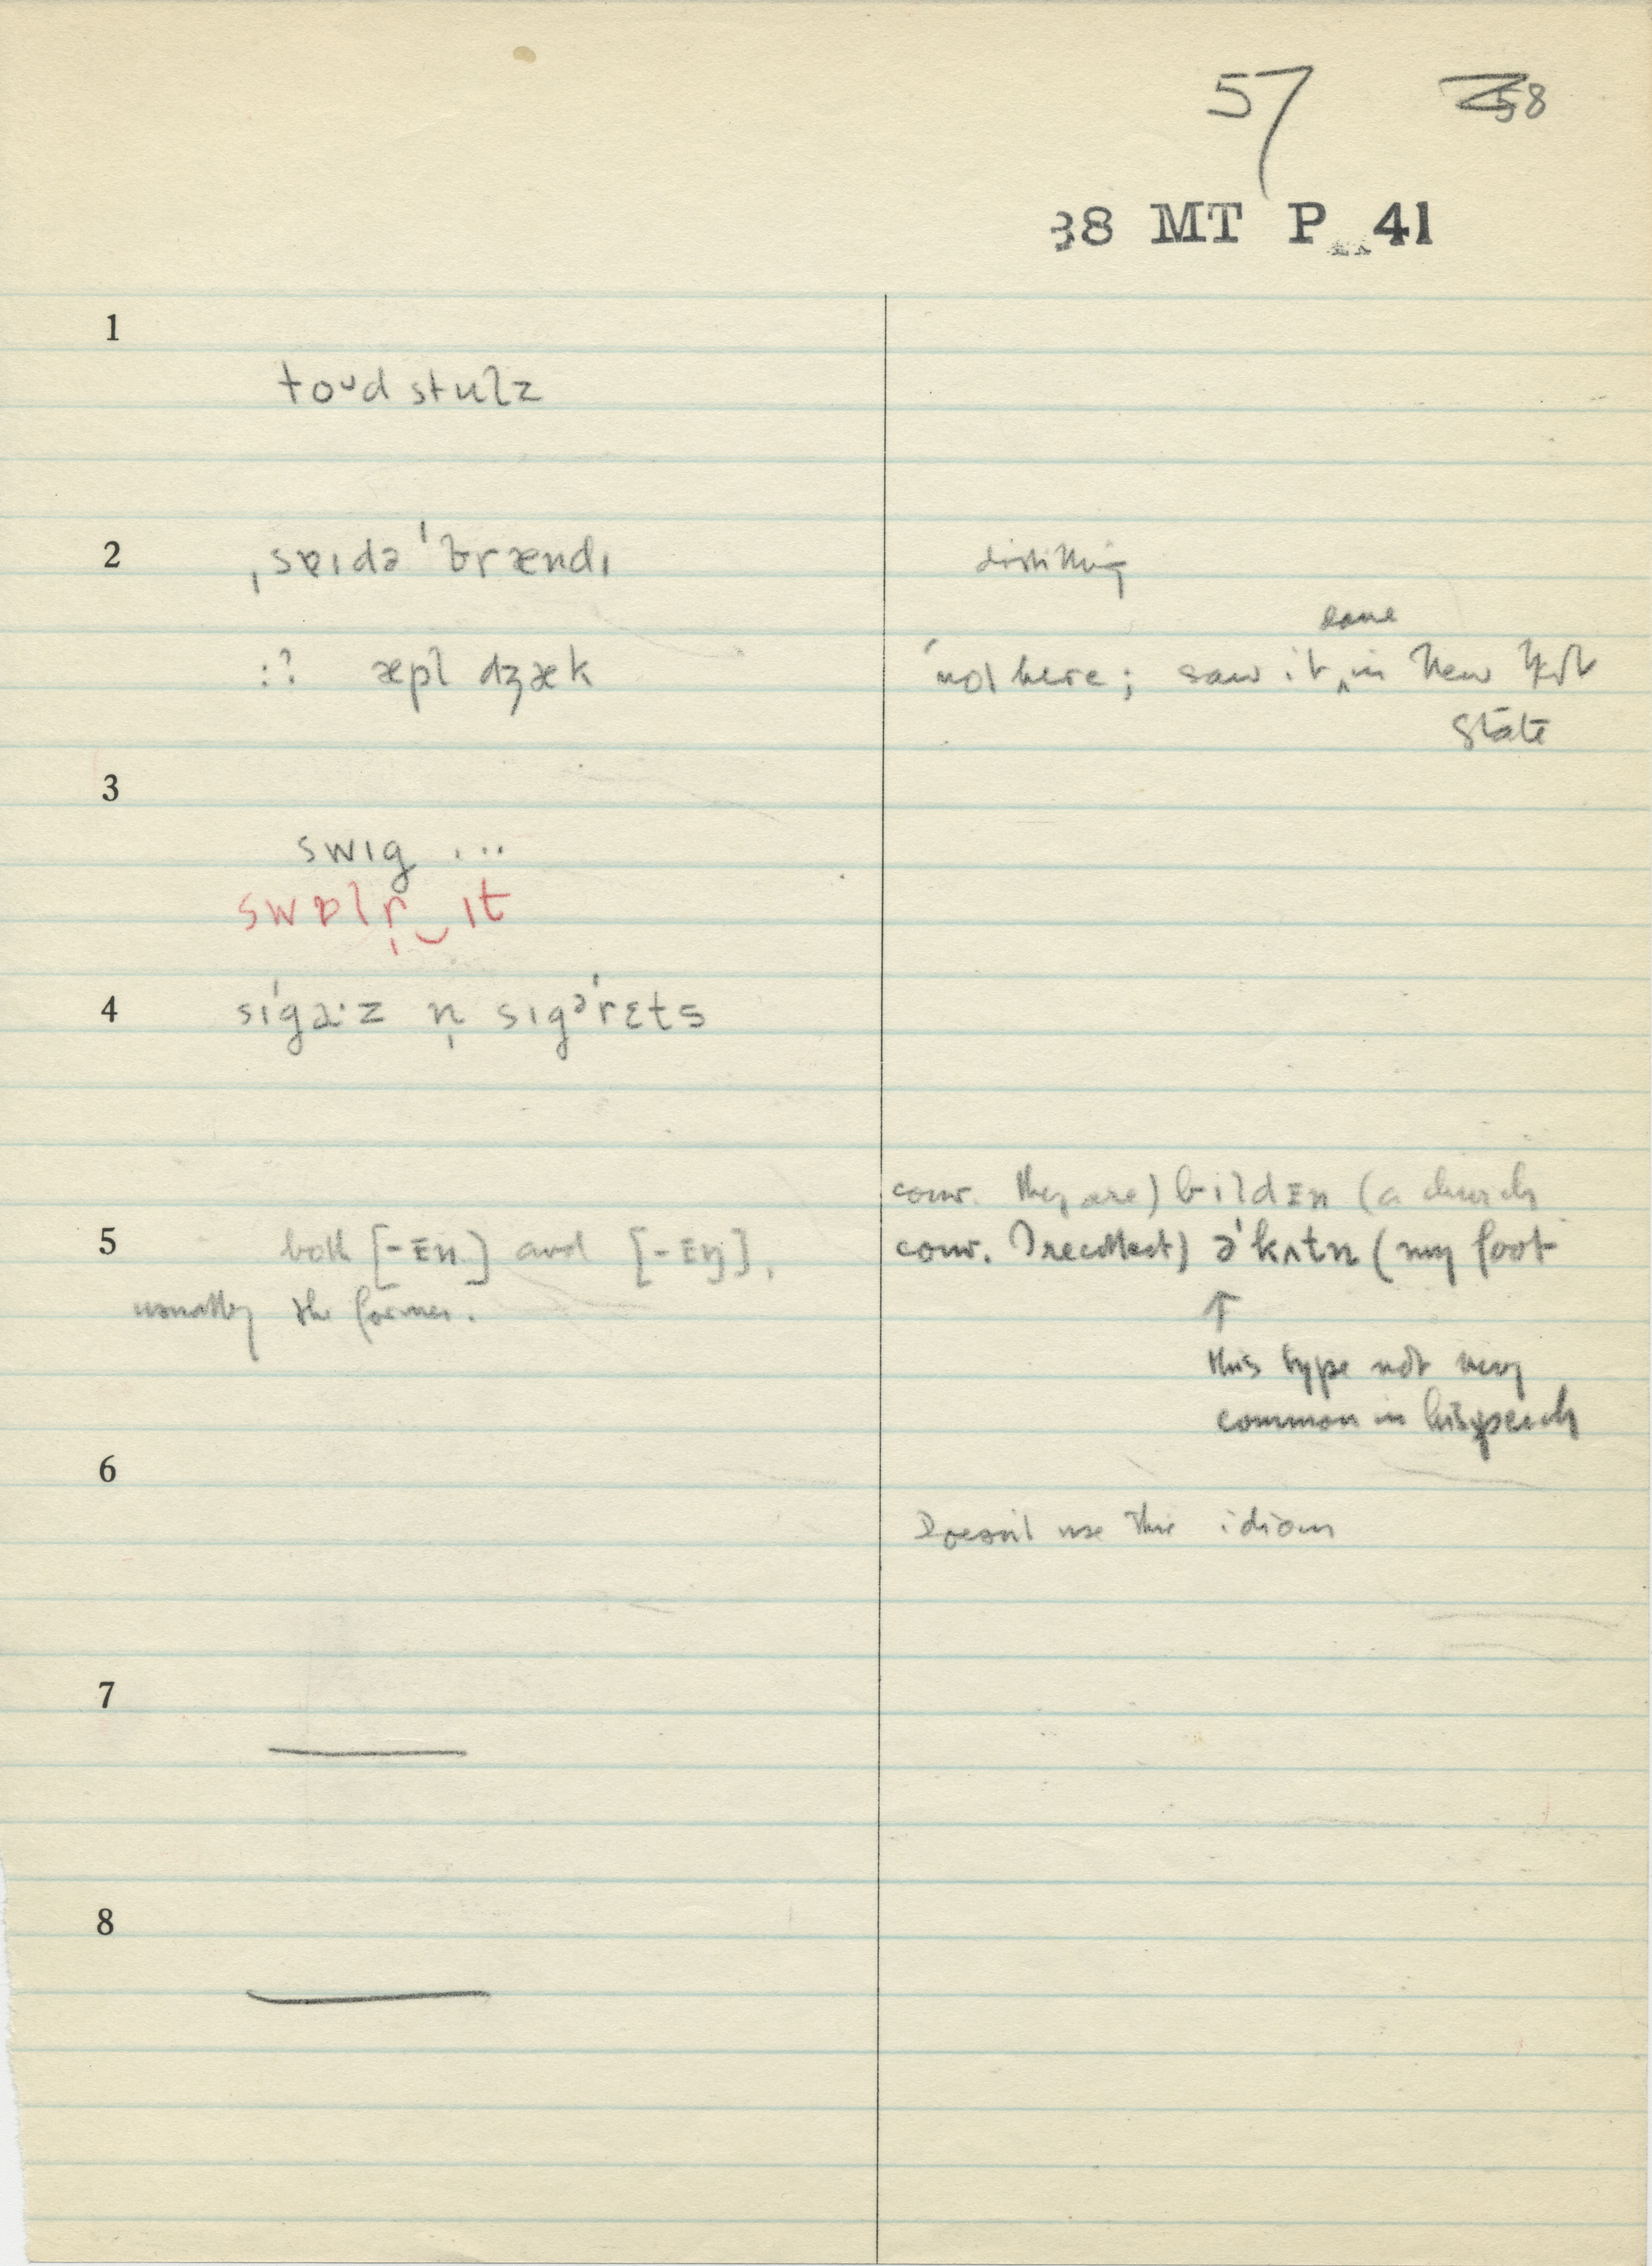 57 58
38 MT P 41
1
toᴜd stulz
2 ˌsɐɪdə ˈbrændɪ distilling
done
:? æpl dʒæk not here; saw it ‸ in New York
State
3
swɪg ...
swɒlr̩‿ɪt
4 sɪˈgɑ·z n̩ sɪgəˈrɛts
conv. they are) bildɪn (a church
5 both [-ɪn] and [-ɪŋ], conv. I recollect) əˈkʌtn (my foot
usually the former. ↑
this type not very
common in his speech
6
Doesn't use this idiom
7
8